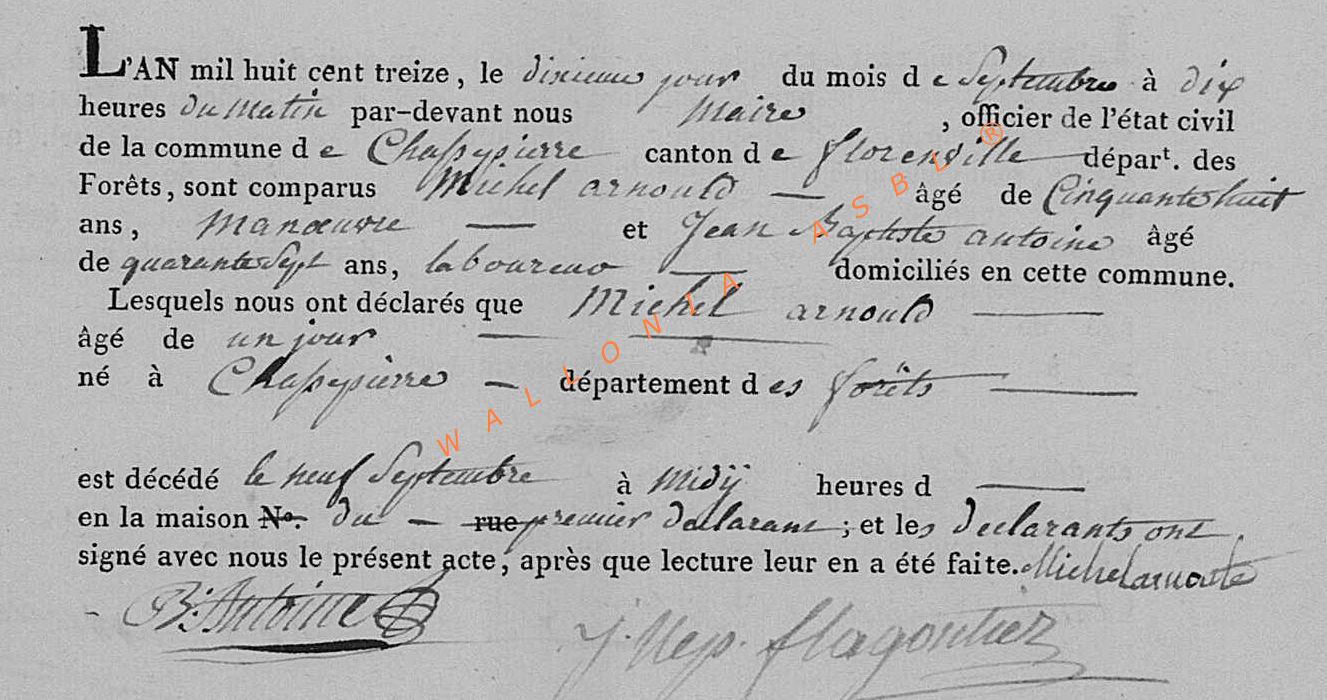 L'AN mil huit cent treize, le dixieme jour du mois de Septembre à dix
heures du matin par-devant nous Maire, officier de l'état civil
de la commune de Chassepierre canton de florenville départ. des
Forêts, sont comparus Michel arnould — âgé de Cinquante huit
ans, Manœuvre — et Jean Baptiste antoine âgé
de quarante Sept ans, laboureur — domiciliés en cette commune.
Lesquels nous ont déclarés que Michel arnould —
âgé de un jour — —
né à Chassepierre — département des forêts —
est décédé le neuf Septembre à Midÿ heures d —
en la maison No. du — rue premier declarant; et les declarants ont
signé avec nous le présent acte, après que lecture leur en a été faite. Michel
B. Antoine
J. Nep. flagontier
WALLONIA ASBL ®